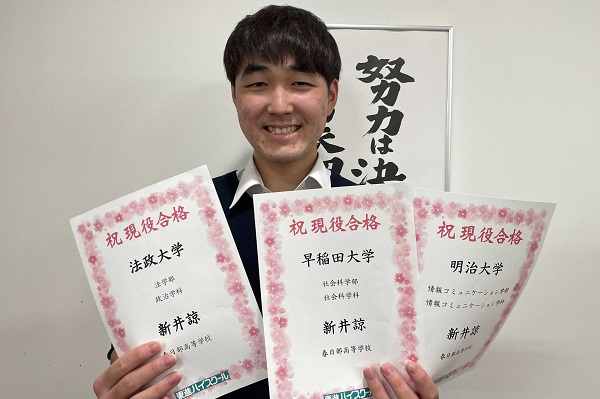 努力は
決
祝 現役合格
法政大学
法学部
政治学科
新井諒
春日部高等学校
東進ハイスクール
祝 現役合格
早稲田大学
社会科学部
社会科学科
新井諒
春日部高等学校
東進ハイスクール
祝 現役合格
明治大学
情報コミュニケーション学部
情報コミュニケーション学科
新井諒
春日部高等学校
東進ハイスクール